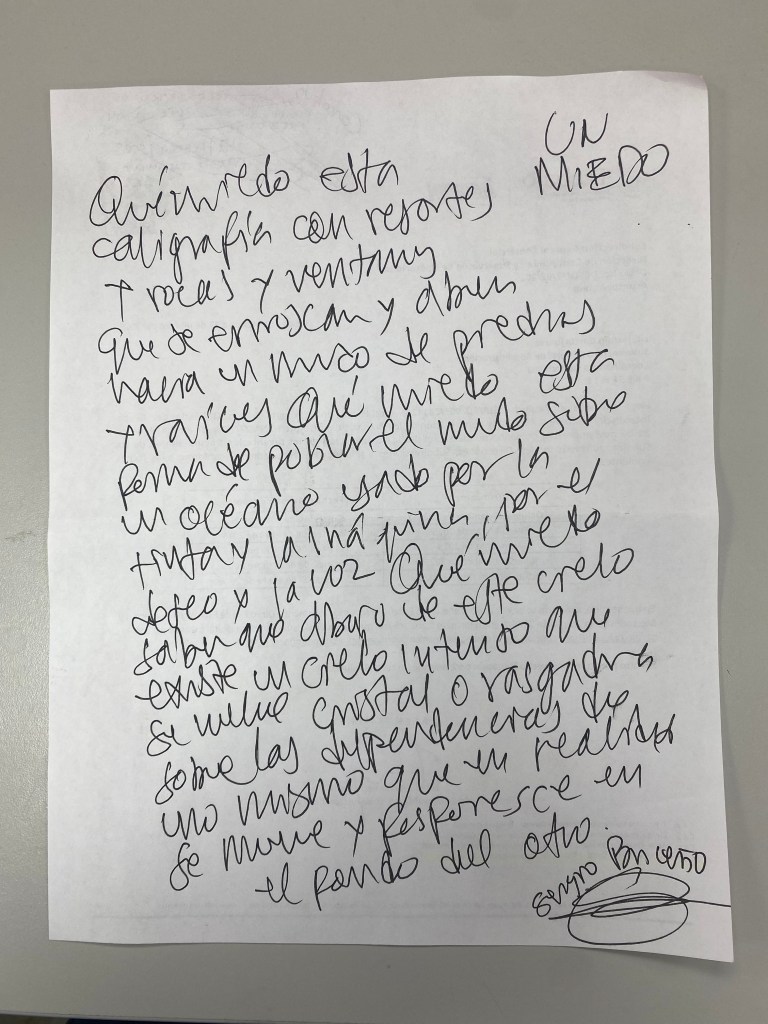 UN
MIEDO
Qué miedo esta
caligrafía con resortes
y rocas y ventanas
que se enroscan y abren
hacia un muro de piedras
y raíces Qué miedo esta
forma de poblar el mundo sobre
un océano usado por la
tinta y la máquina, por el
deseo y la voz Qué miedo
saber que abajo de este cielo
existe un cielo intenso que
se vuelve cristal o rasgadura
sobre las dependencias de
uno mismo que en realidad
se mueve y
en
el fondo del otro.
Sergio